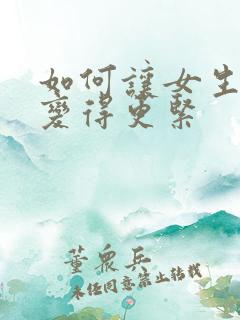 如何讓女生
變得更緊
董眾兵
未經同意禁止轉載